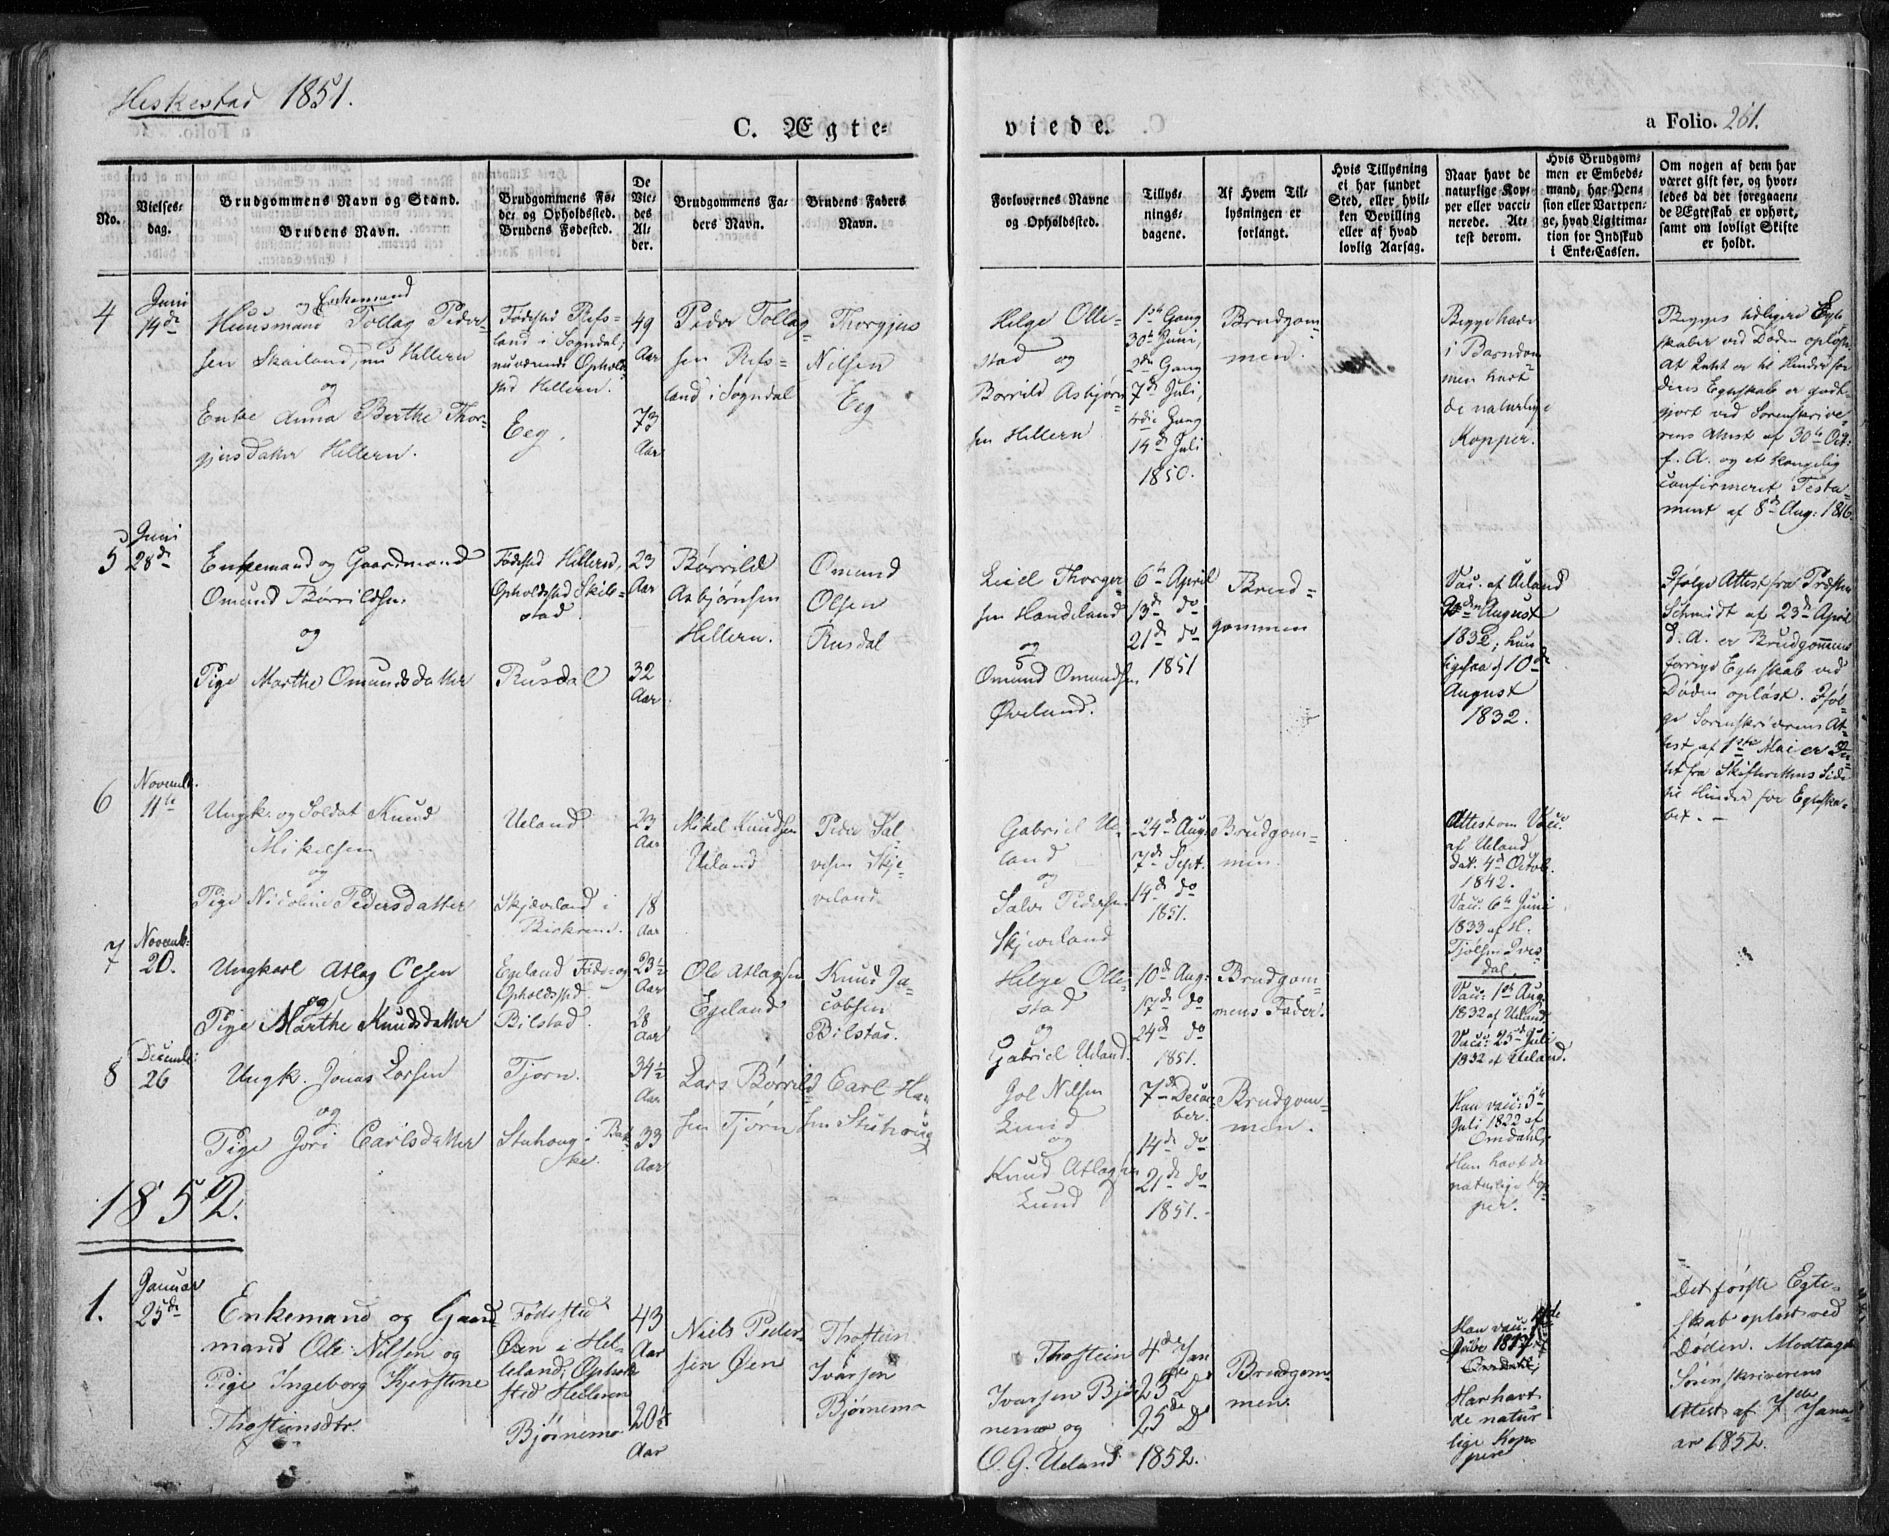 Heskestad 1851.
C. Ægte-
viede.
a Folio. 261.
No.
Vielses-
dag.
Brudgommens Navn og Stand.
Brudens Navn.
Brudgommens Fø-
de- og Opholdssted.
Brudens Fødested.
De
Vie-
des
Al-
der.
Brudgommens Fa-
ders Navn.
Brudens Faders
Navn.
Forlovernes Navne
og Opholdssted.
Tillys-
nings-
dagene.
Af Hvem Til-
lysningen er
forlangt.
Hvis Tillysning
ei har fundet
Sted, eller, hvil-
ken Bevilling
eller af hvad
lovlig Aarsag.
Naar havt de
naturlige Kop-
per eller vacci-
nerede. At-
test derom.
Hvis Brudgom-
men er Embeds-
mand, har Pen-
sion eller Vartpen-
ge, hvad Ligitima-
tion for Indskud
i Enke-Cassen.
Om nogen af dem har
været gift før, og hvor-
ledes da det foregaaen-
de Ægteskab er ophørt,
samt om lovligt Skifte
er holdt.
4
Juni
14de
og Enkemand
Huusmand Tollag Peder-
sen Skailand, nu Hellern
og
Enke Anna Berthe Thor-
gjersdatter Hellern.
Fødested Refs-
land i Sogndal,
nuværende Ophold-
sted Hellern.
Eeg.
49
Aar
73
Aar
Peder Tollag-
sen Refs-
land i Sogndal
Thorgjus
Nilsen
Eeg
Helge Olle-
stad og
Børrild Asbjørn-
sen Hellern
1ste Gang
30te Juni,
2den Gang
7de Juli,
3die Gang
14de Juli
1850.
Brudgom-
men.
Begge have
i Barndom-
men havt
de naturlige
Kopper.
Begges tidligere Egte-
skaber ved Døden opløste.
At Intet er til Hinder for
deres Egteskab er godt-
gjort ved Sorenskrive-
rens Attest af 30te Oct:
f. A. og et kongelig
confirmeret Testa-
ment af 8de Aug: 1816.
5
Juni
28de
Enkemand og Gaardmand
Omund Børrildsen
og
Pige Marthe Omundsdatter
Fødested Hellern,
Opholdssted Skib-
stad.
Rusdal
23
Aar
32
Aar
Børrild
Asbjørnsen
Hellern.
Omund
Olsen
Rusdal
Eiel Thorger-
sen Handeland
og
Omund Omundsen
Øveland.
6te April
13de do
21de do
1851
Brud-
gommen
Vac. af Ueland
August
1832; hun
ligesaa 10de
August
1832.
Ifølge Attest fra Præsten
Schmidt af 23de April
d. A. er Brudgommens
forrige Egteskab ved
Døden opløst. Iføl-
ge Sorenskriverens At-
test af 1ste Mai er In-
tet fra Skifterettens Side
til Hinder for Egteska-
bet. -
6
Novemb.
11te
Ungkr og Soldat Knud
Mikelsen
og
Pige Nicoline Pedersdatter
Ueland
Skjæveland i
Birkrem.
23
Aar
18
Aar
Mikel Knudsen
Ueland
Peder Sal-
vesen Skje-
veland
Gabriel Ue-
land
og
Salve Pedersen
Skjæveland
24de Aug:
7de Sept.
14de do
1851.
Brudgom-
men.
Attest om Vacc.
af Ueland
dat. 4de Octob.
1842.
Vac. 6te Juni
1833 af H.
Tjølsen
dal.
7
Novemb:
20.
Ungkarl Atlag Olsen
og
Pige Marthe Knudsdatter
Egeland Føde og
Opholdssted.
Bilstad.
23½
Aar
28
Aar
Ole Atlagsen
Egeland
Knud Ja-
cobsen
Bilstad.
Helge Olle-
stad
og
Gabriel Ueland.
10de Aug:
17de do
24de do
1851.
Brudgom-
mens Fader.
Vac: 1ste Aug.
1832 af Ueland.
Vacc: 25de Juli
1832 af Ueland.
8
Decemb:
26
Ungk. Jonas Larsen
og
Pige Jori Carlsdatter
Tjørn.
Stuhoug i Bak-
ke.
34½
Aar
33
Aar
Lars Børrild-
sen Tjørn
Carl Han-
sen Stuhoug
Jol Nilsen
Lund
og
Knud Atlagsen
Lund
7de Decem-
ber.
14de do
21de do
1851.-
Brudgom-
men.
Han vacc: 5te
Juli 1822 af
Omdahl,
Hun havt de
naturlige Kop-
per.
1852.
1.
Januar
25de
Enkemand og Gaard
mand Ole Nilsen og
Pige Ingeborg Kjerstine
Thosteinsdtr.
Fødested
Øen i Hel-
leland, Ophold-
sted Helleren
Bjørnemo
43
Aar
20½
Aar
Niels Peder-
sen Øen
Thostein
Ivarsen
Bjørnemo
Thostein
Ivarsen Bjør-
nemo og
O. G. Ueland.
4de Jan
23de Do
25de Do
1852.
Brudgom
men.
Han vacc.
Omdahl,
Hun havt
de natur
lige Kop-
perne
Det første Egte-
skab opløst ved
Døden. Modtaget
Sørenskriverens
Attest af 7de Janu-
ar 1852.